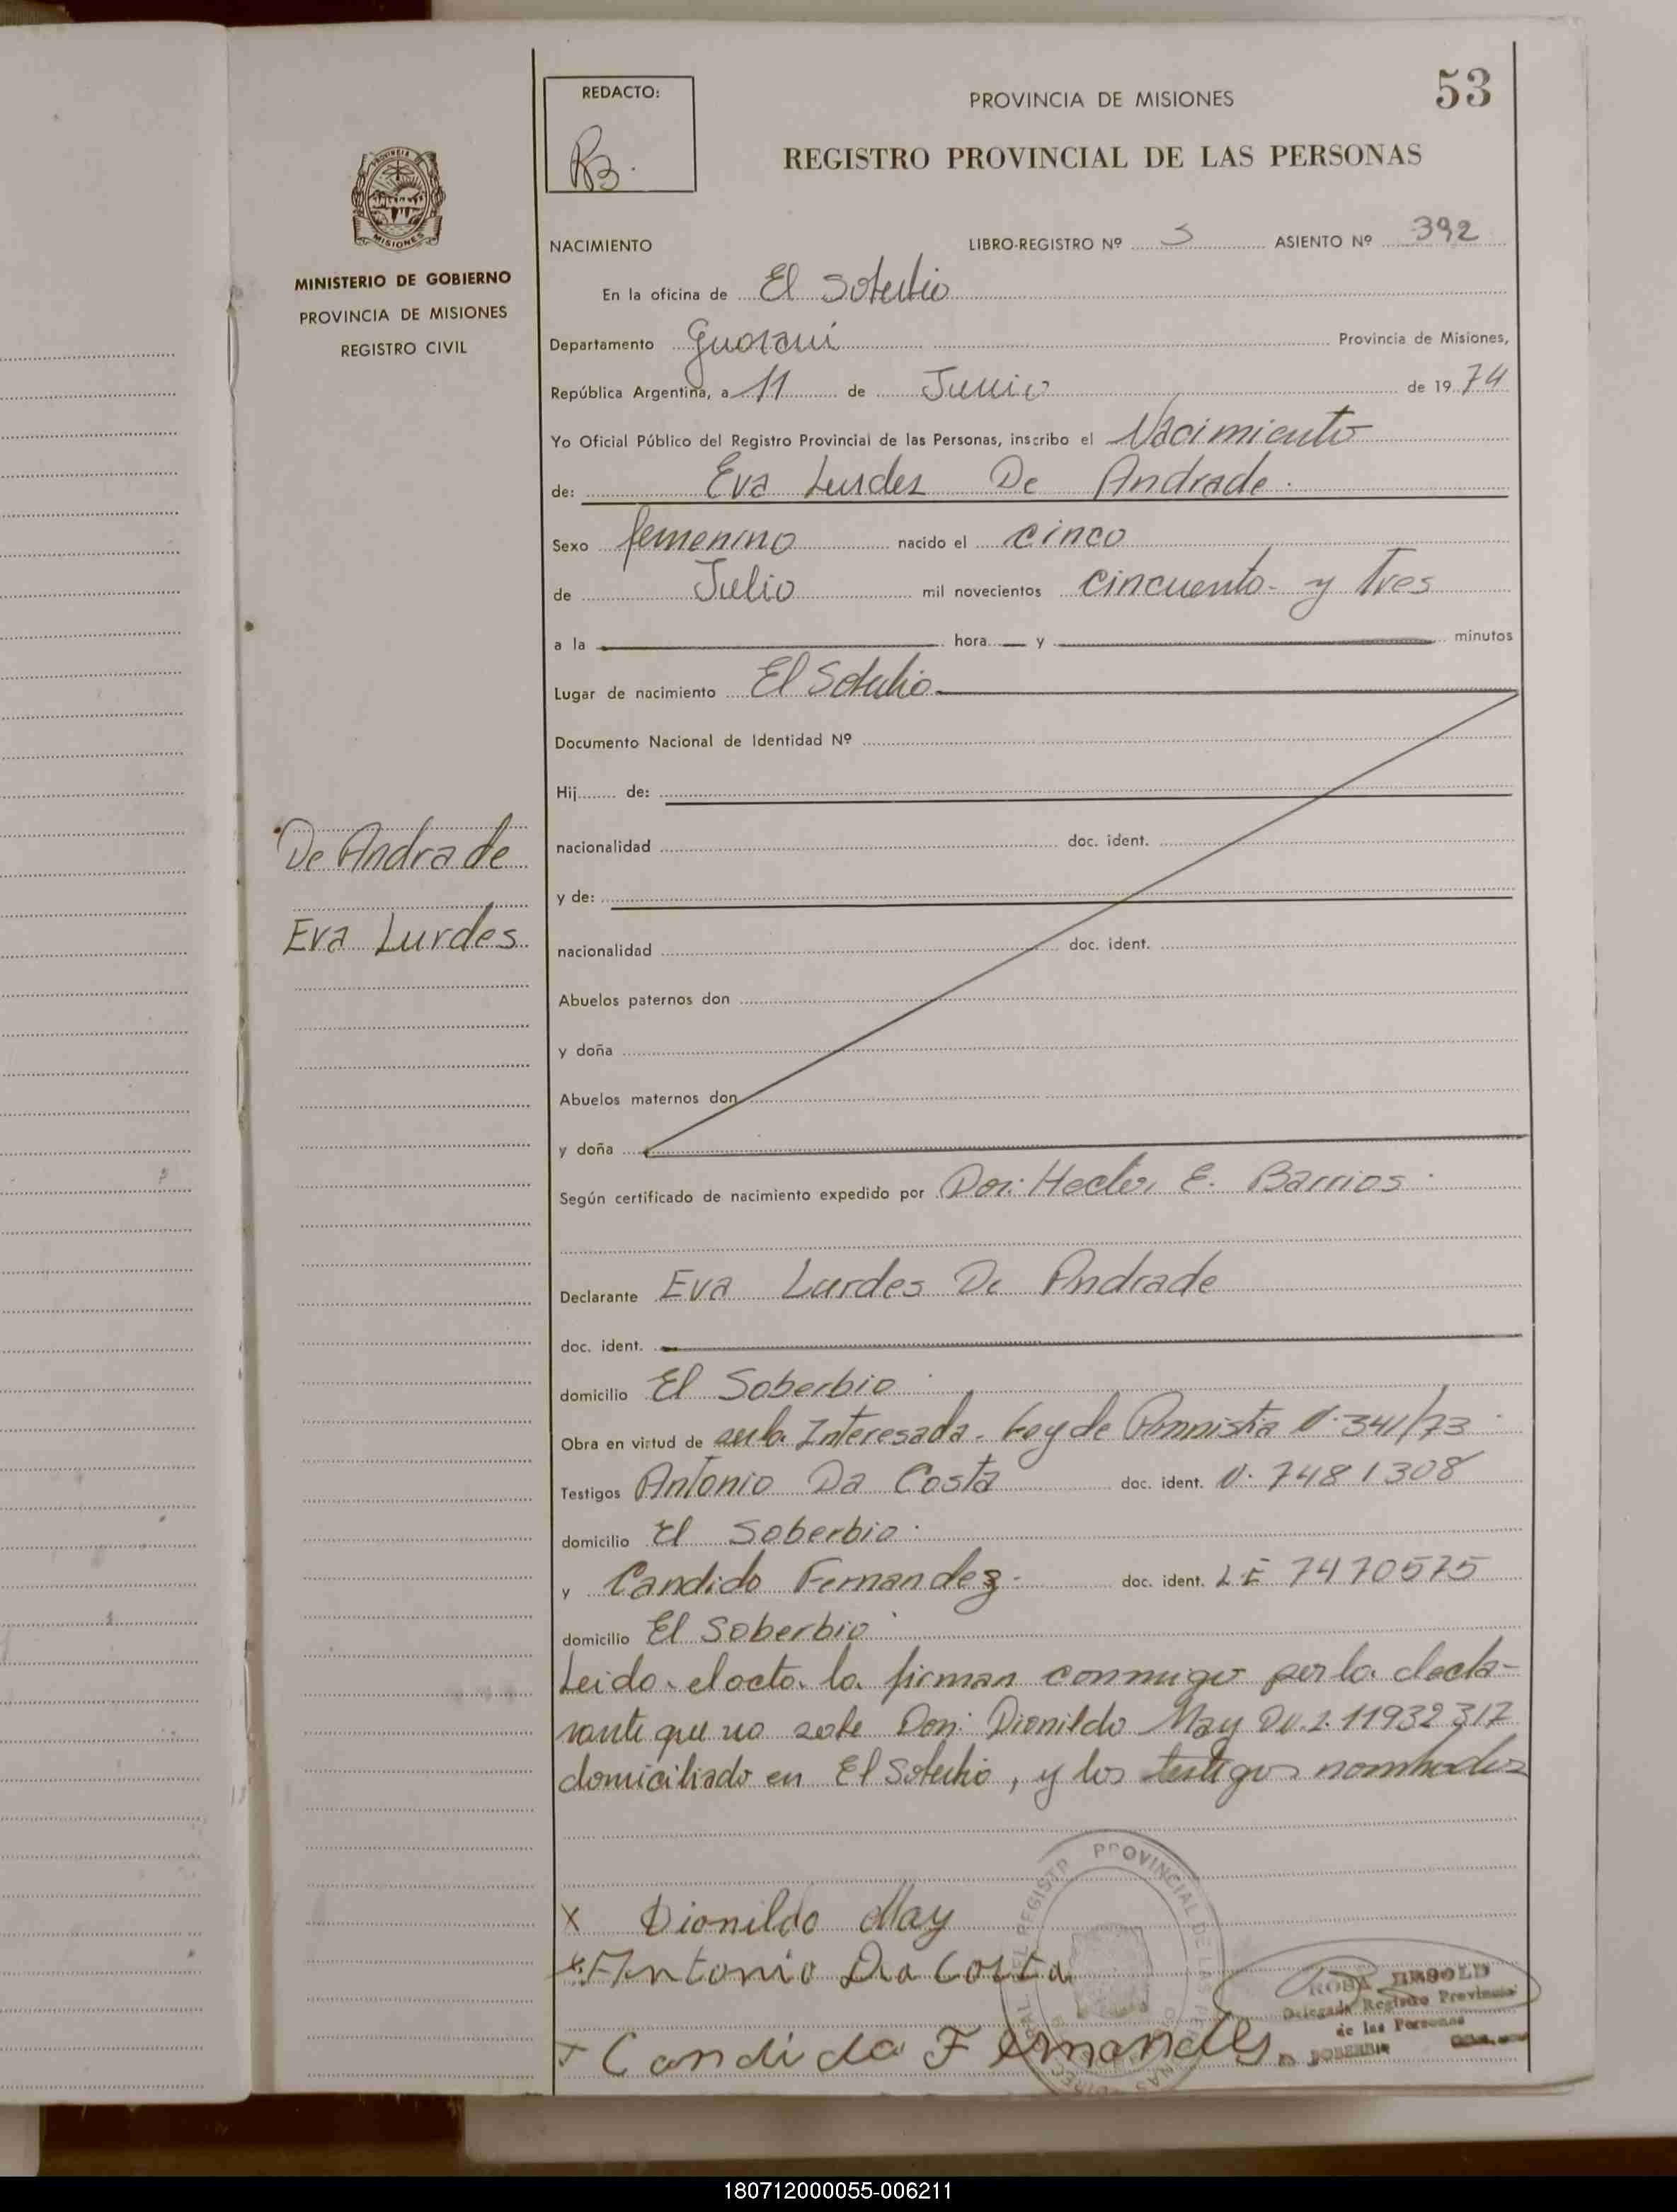 53
REDACTO:
PROVINCIA DE MISIONES
REGISTRO PROVINCIAL DE LAS PERSONAS
MISIONES
MINISTERIO DE GOBIERNO
PROVINCIA DE MISIONES
REGISTRO CIVIL
NACIMIENTO LIBRO-REGISTRO Nº ASIENTO Nº 392
En la oficina de El Soberbio
Departamento Guarani Provincia de Misiones,
República Argentina, a 11 de Junio de 1974
Yo Oficial Público del Registro Provincial de las Personas, inscribo el Nacimiento
de: Eva Lurdes De Andrade.
Sexo femenino nacido el cinco
de Julio mil novecientos cincuenta y Tres
a la hora y minutos
Lugar de nacimiento El Soberbio
Documento Nacional de Identidad Nº
Hij de:
nacionalidad doc. ident.
De Andrade
y de:
Eva Lurdes
nacionalidad doc. ident.
Abuelos paternos don
y doña
Abuelos maternos don
y doña
Según certificado de nacimiento expedido por Hector E. Barrios
Declarante Eva Lurdes De Andrade
doc. ident.
domicilio El Soberbio
Obra en virtud de Interesada. Ley de Amnistia 341/73
Testigos Antonio Da Costa doc. ident. 7481308
domicilio El Soberbio
y Candido Fernandez doc. ident. LE 7470575
domicilio El Soberbio
Leido el acto la firman conmigo por la decla-
rante que no sabe Don: Dionildo May 11932317
domiciliado en El Soberbio, y los testigos nombrados
X Dionildo May
Antonio Da Costa
Candido Fernandes
ROSA
Delegada Registro Provincial
de las Personas
SOBERBIO
180712000055-006211